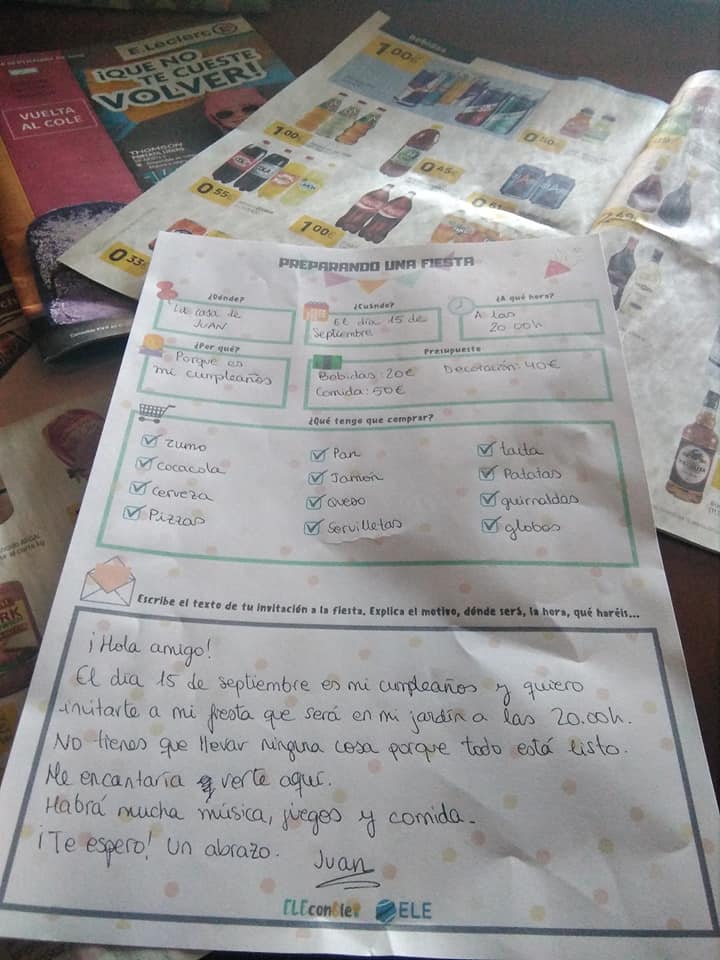 E.Leclerc
¡QUE NO
TE CUESTE
VOLVER!
VUELTA
AL COLE
THOMSON
bebidas
1'00€
1'00€
0'45€
0'55€
1'00€
0'33€
PREPARANDO UNA FIESTA
¿Dónde?
La casa de
JUAN
¿Cuándo?
El día 15 de
Septiembre
¿A qué hora?
A las
20.00h
¿Por qué?
Porque es
mi cumpleaños
Presupuesto
Bebidas: 20€ Decoración: 40€
Comida: 50€
¿Qué tengo que comprar?
zumo
cocacola
Cerveza
Pizzas
Pan
Jamón
Queso
Servilletas
tarta
Patatas
guirnaldas
globos
Escribe el texto de tu invitación a la fiesta. Explica el motivo, dónde será, la hora, qué haréis...
¡Hola amigo!
El día 15 de septiembre es mi cumpleaños y quiero
invitarte a mi fiesta que será en mi jardín a las 20.00h.
No tienes que llevar ninguna cosa porque todo está listo.
Me encantaría verte aquí.
Habrá mucha música, juegos y comida.
¡Te espero! Un abrazo.
Juan
ELEconCle
ELE